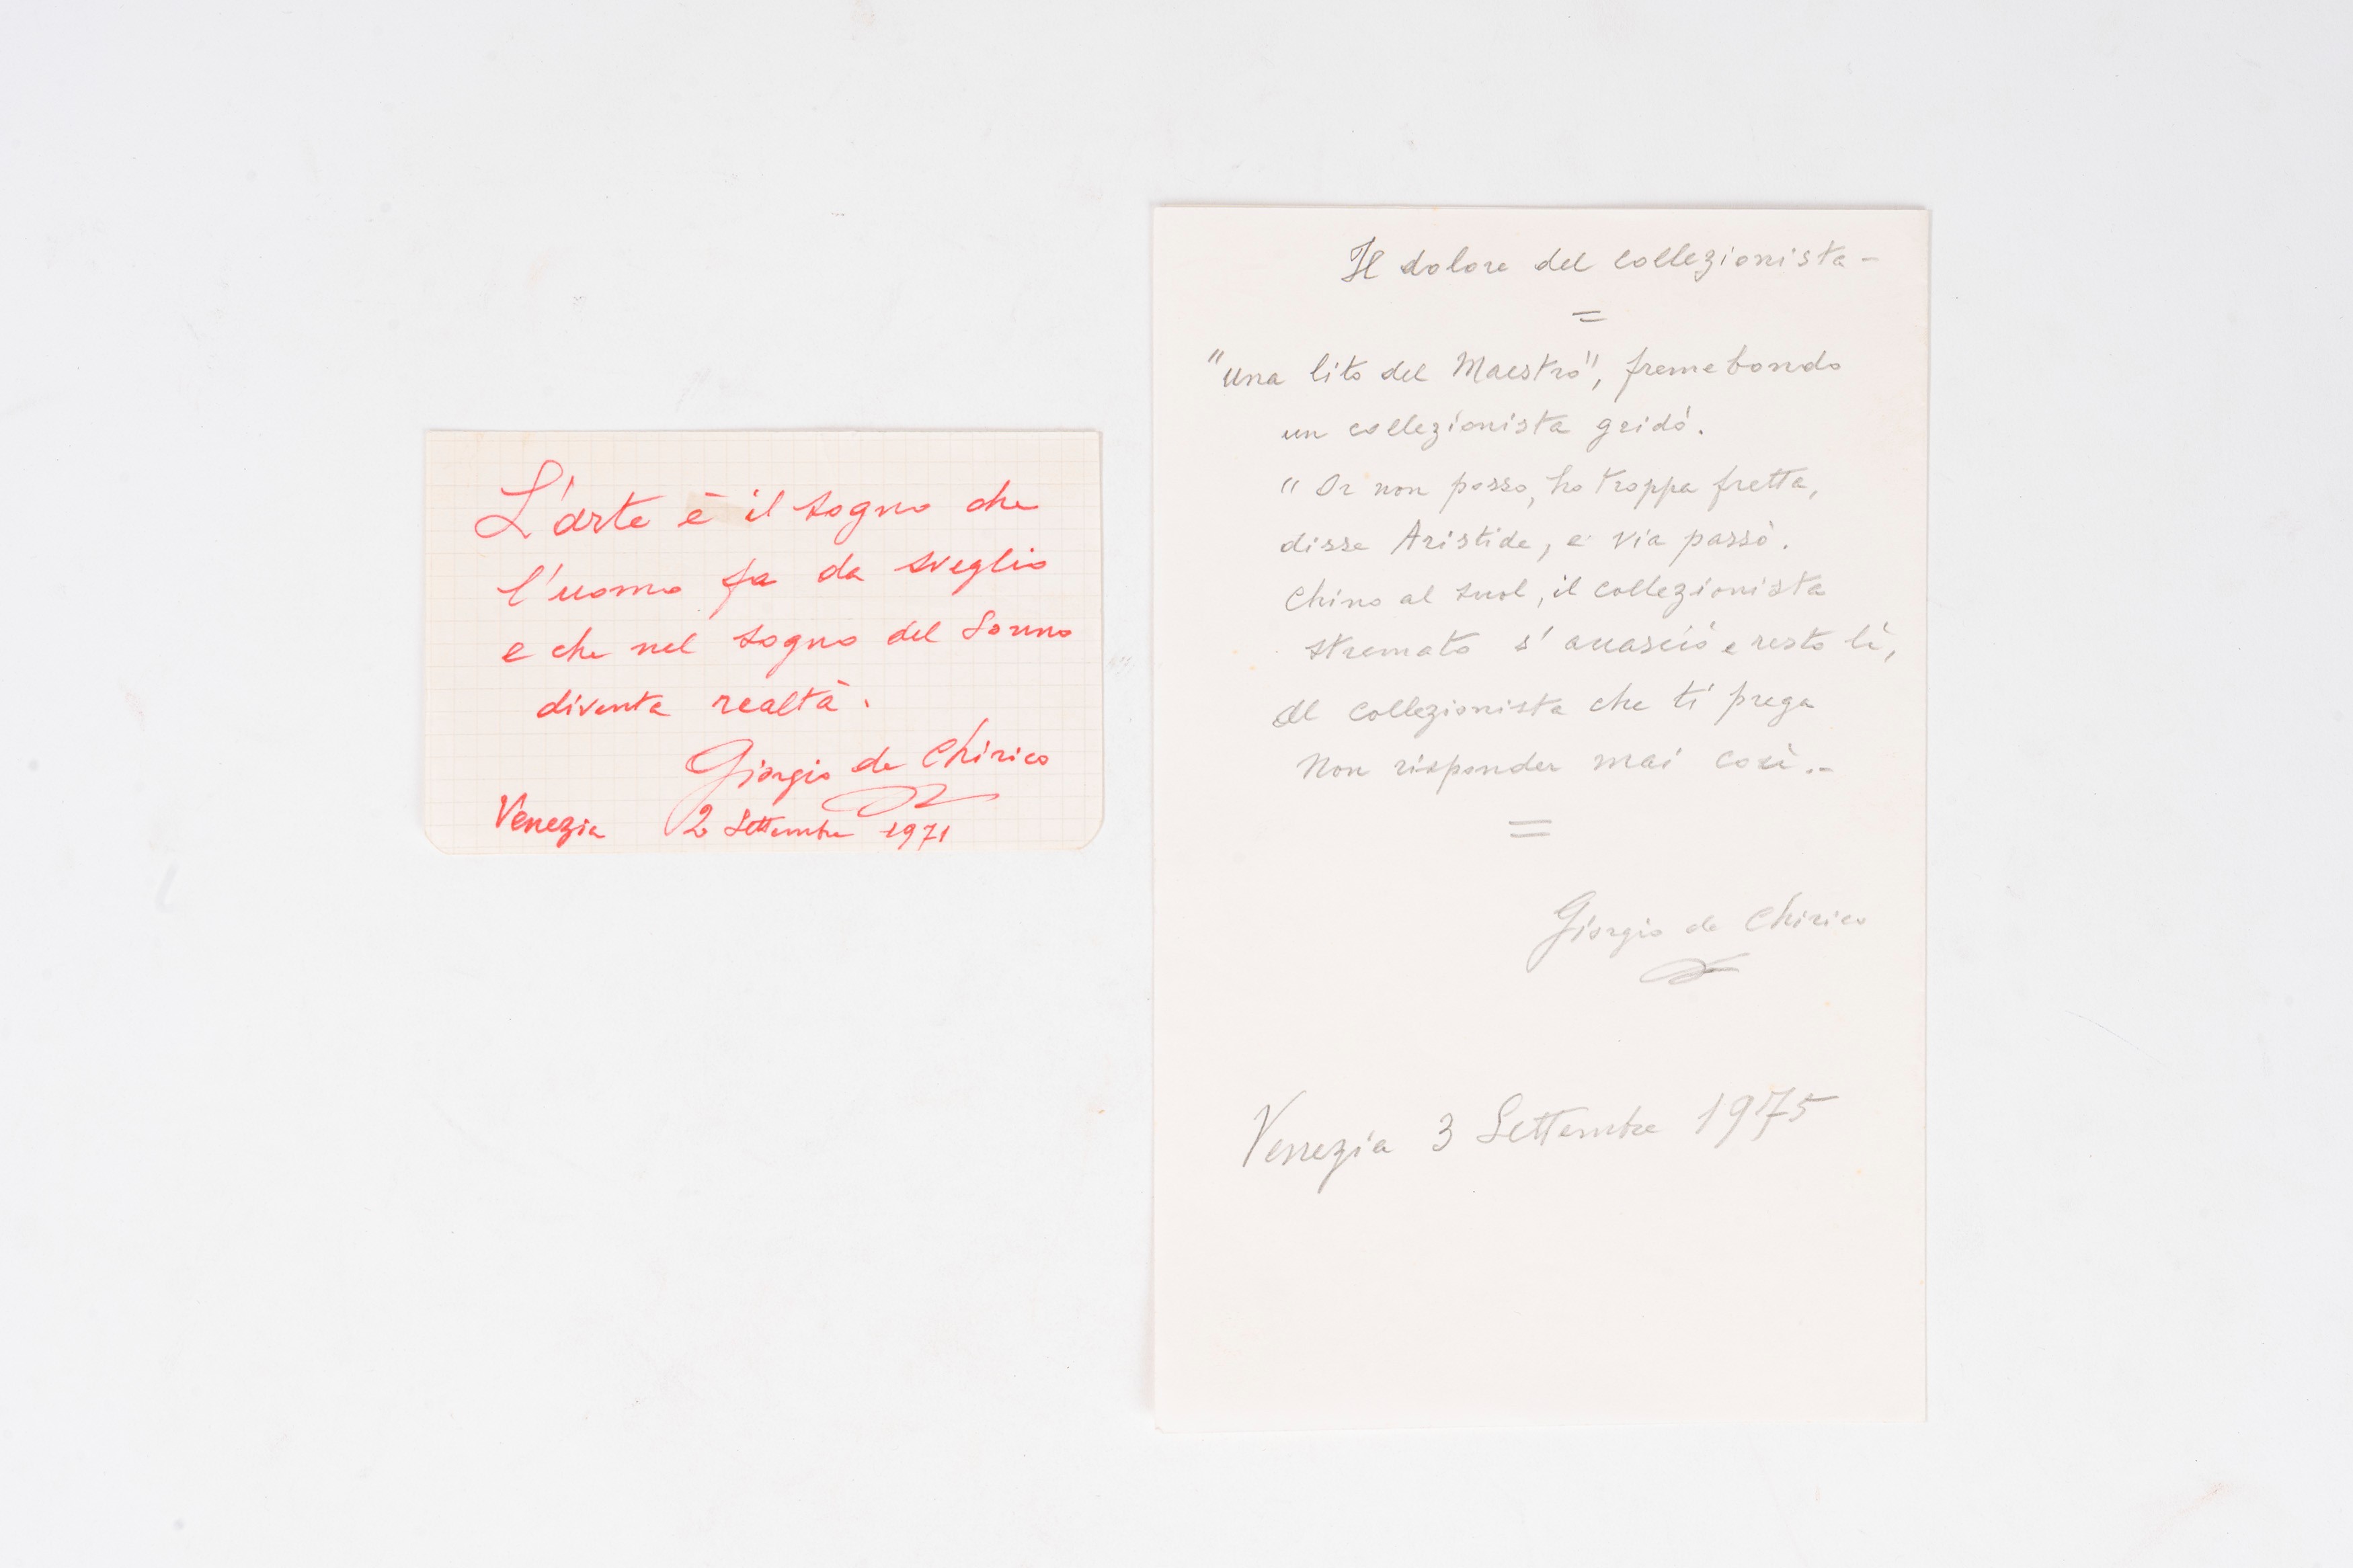 L'arte è il sogno che
l'uomo fa da sveglio
e che nel sogno del Sonno
diventa realtà.
Giorgio de Chirico
Venezia 2 Settembre 1971
Il dolore del collezionista -
=
"una lito del Maestro", fremebondo
un collezionista gridò.
" Or non posso, ho troppa fretta,
disse Aristide, e via passò.
Chino al suol, il collezionista
stremato s'accasciò e restò lì,
Al collezionista che ti prega
Non risponder mai così.-
=
Giorgio de Chirico
Venezia 3 Settembre 1975